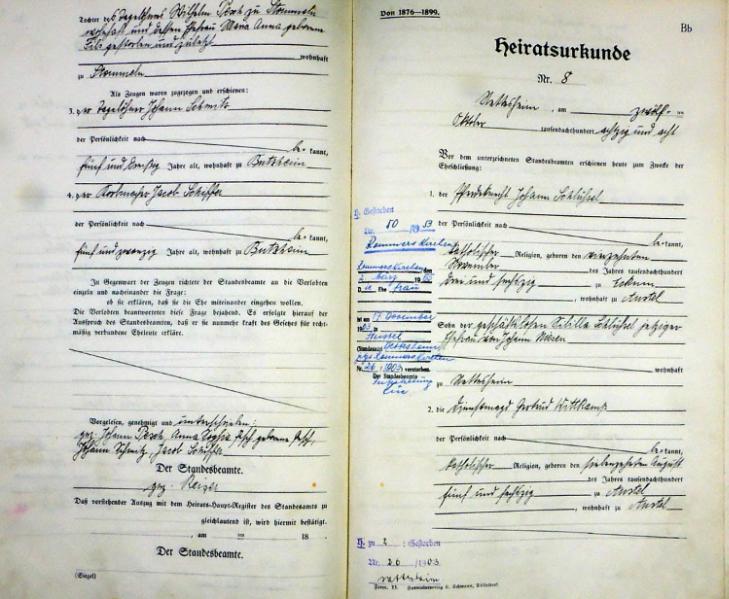 Tochter des Tagelöhners Wilhelm Pesch zu Stommeln
wohnhaft und dessen Ehefrau Maria Anna geborene
gestorben und zuletzt
, wohnhaft
zu Stommeln
Als Zeugen waren zugezogen und erschienen:
3. der Tagelöhner Johann Schmitz
der Persönlichkeit nach
be kannt,
fünf und dreißig Jahre alt, wohnhaft zu Butzheim
4. der Korbmacher Jacob Schiffer
der Persönlichkeit nach
be kannt,
fünf und zwanzig Jahre alt, wohnhaft zu Butzheim
In Gegenwart der Zeugen richtete der Standesbeamte an die Verlobten
einzeln und nacheinander die Frage:
ob sie erklären, daß sie die Ehe miteinander eingehen wollen.
Die Verlobten beantworteten diese Frage bejahend. Es erfolgte hierauf der
Ausspruch des Standesbeamten, daß er sie nunmehr kraft des Gesetzes für recht-
mäßig verbundene Eheleute erkläre.
Vorgelesen, genehmigt und unterschrieben:
gez: Johann Pesch, Anna Sophia Pesch geborene Pesch,
Johann Schmitz, Jacob Schiffer
Der Standesbeamte.
gez. Reiser
Daß vorstehender Auszug mit dem Heirats-Haupt-Register des Standesamts zu
gleichlautend ist, wird hiermit bestätigt.
, am ten 18
Der Standesbeamte.
(Siegel)
Von 1876—1899.
Bb
Heiratsurkunde
Nr. 8
Nettesheim, am zwölf ten
Oktober tausendachthundert achtzig und acht
Vor dem unterzeichneten Standesbeamten erschienen heute zum Zwecke der
Eheschließung:
1. der Pferdeknecht Johann Schlüssel
der Persönlichkeit nach
be kannt,
katholischer Religion, geboren den vierzehnten
November des Jahres tausendachthundert
drei und sechzig zu Eckum
, wohnhaft zu Anstel
Sohn der geschäftslosen Sibilla Schlüssel jetziger
Ehefrau von Johann
wohnhaft
zu Nettesheim
2. die Dienstmagd Gertrud Wittkamp
der Persönlichkeit nach
be kannt,
katholischer Religion, geboren den siebenzehnten August
des Jahres tausendachthundert
fünf und sechzig zu Anstel
, wohnhaft zu Anstel
Gestorben
Nr. 50 /1953
Rommerskirchen
Rommerskirchen den
D ie Ehe frau
ist am 17 November
1903 in
Anstel
(Standesamt Nettesheim
Nr. 26 /1903 verstorben.
Der Standesbeamte
H. zu 2 : Gestorben
Nr. 26 /1903
Nettesheim
Form. 11.